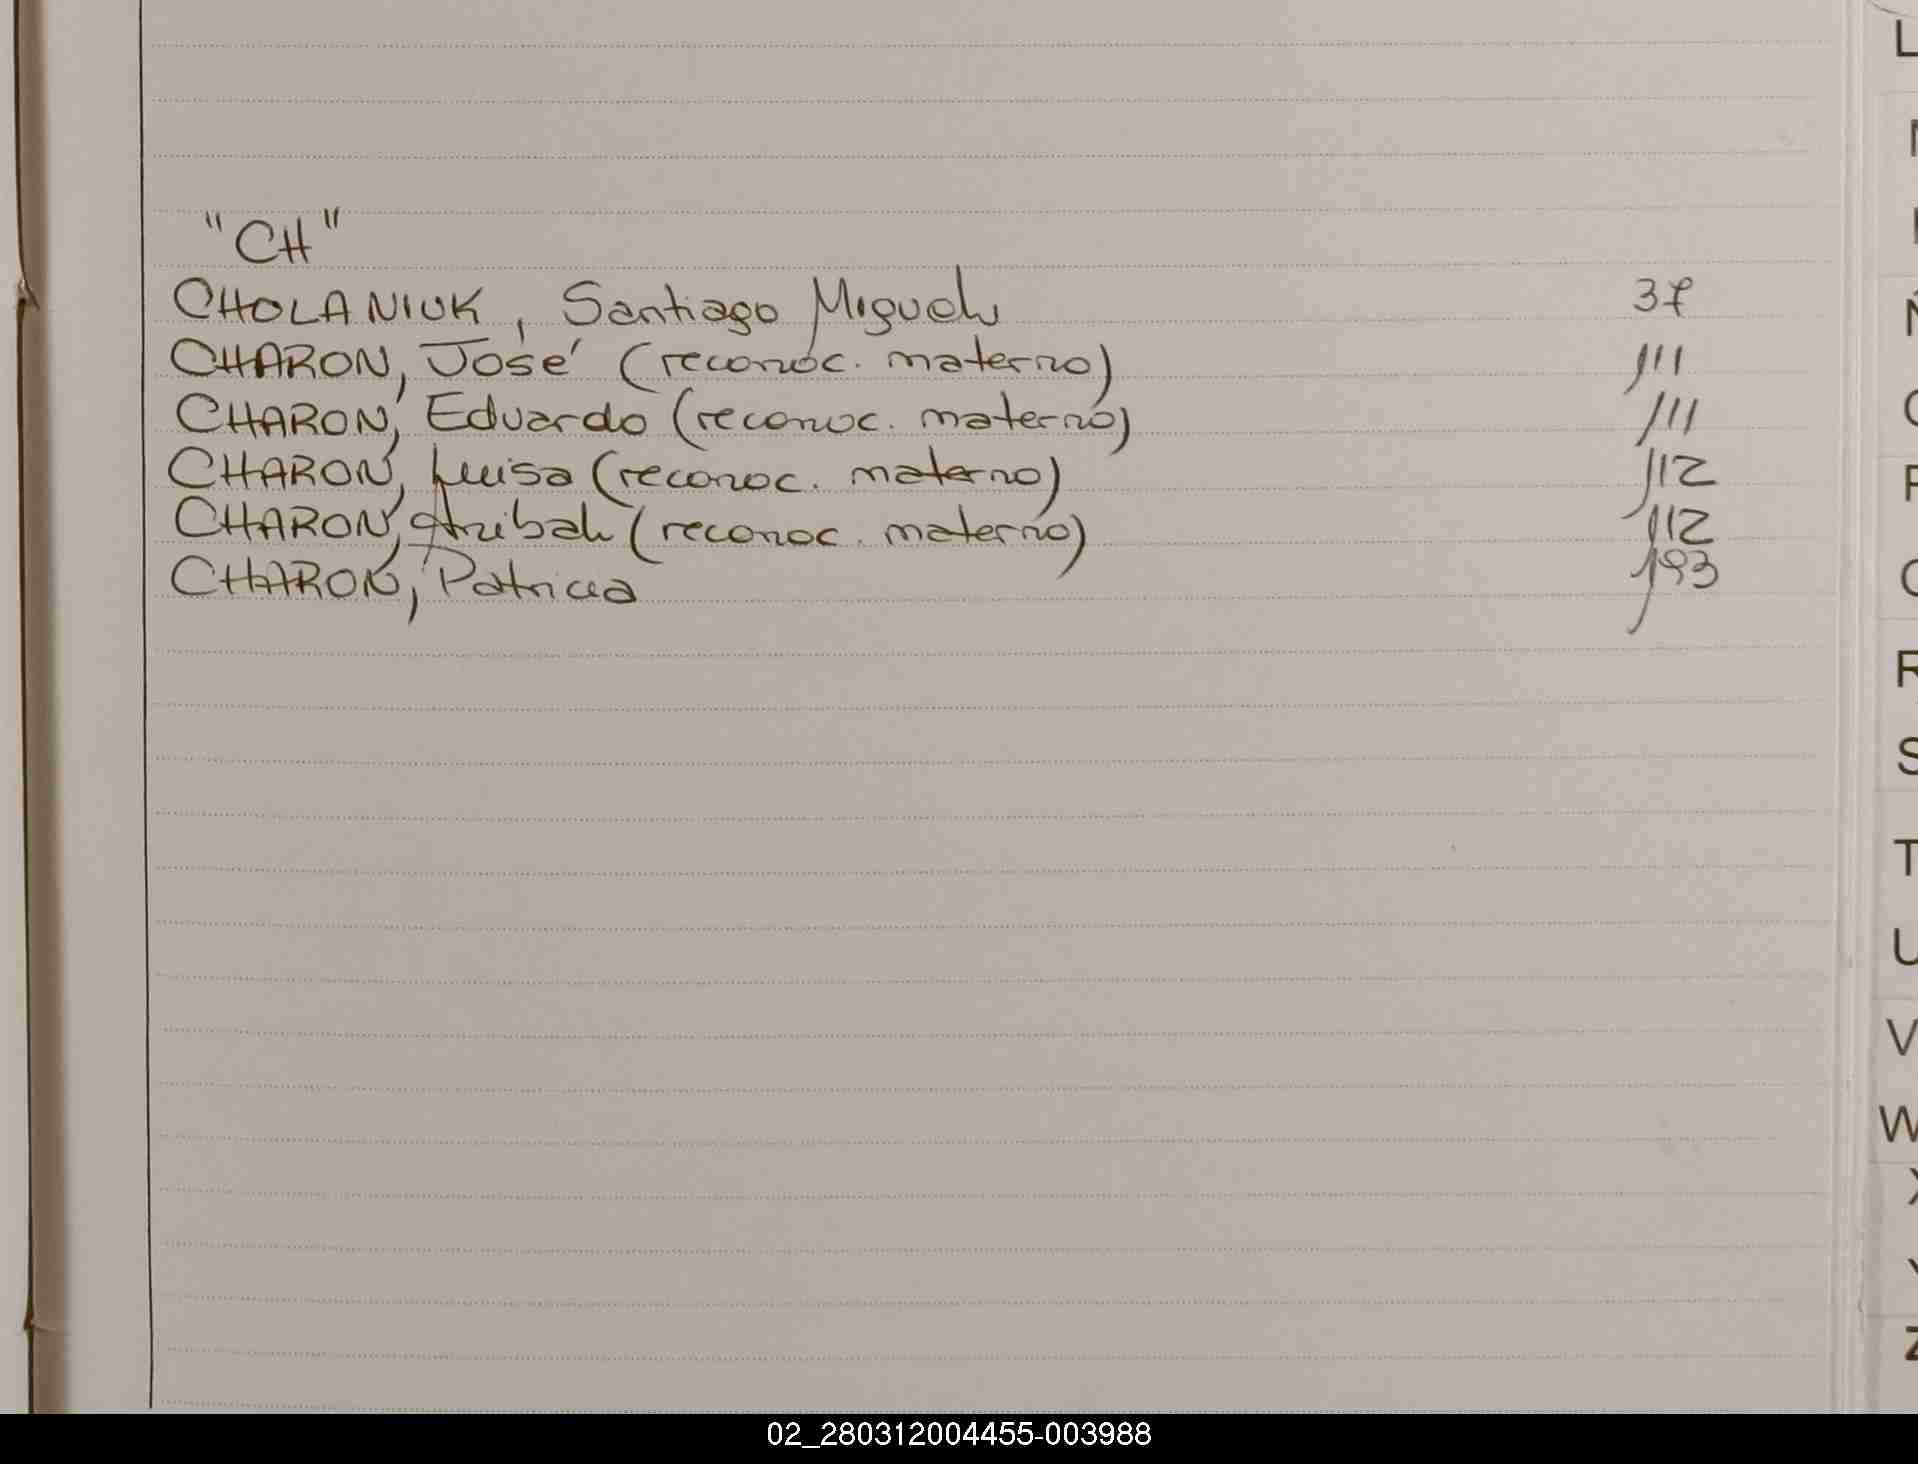 "CH"
CHOLANIUK, Santiago Miguel 37
CHARON, José (reconoc. materno) 111
CHARON, Eduardo (reconoc. materno) 111
CHARON, Luisa (reconoc. materno) 112
CHARON, Anibal (reconoc. materno) 112
CHARON, Patricia 193
L
Ñ
R
S
T
U
V
W
X
Y
Z
02_280312004455-003988